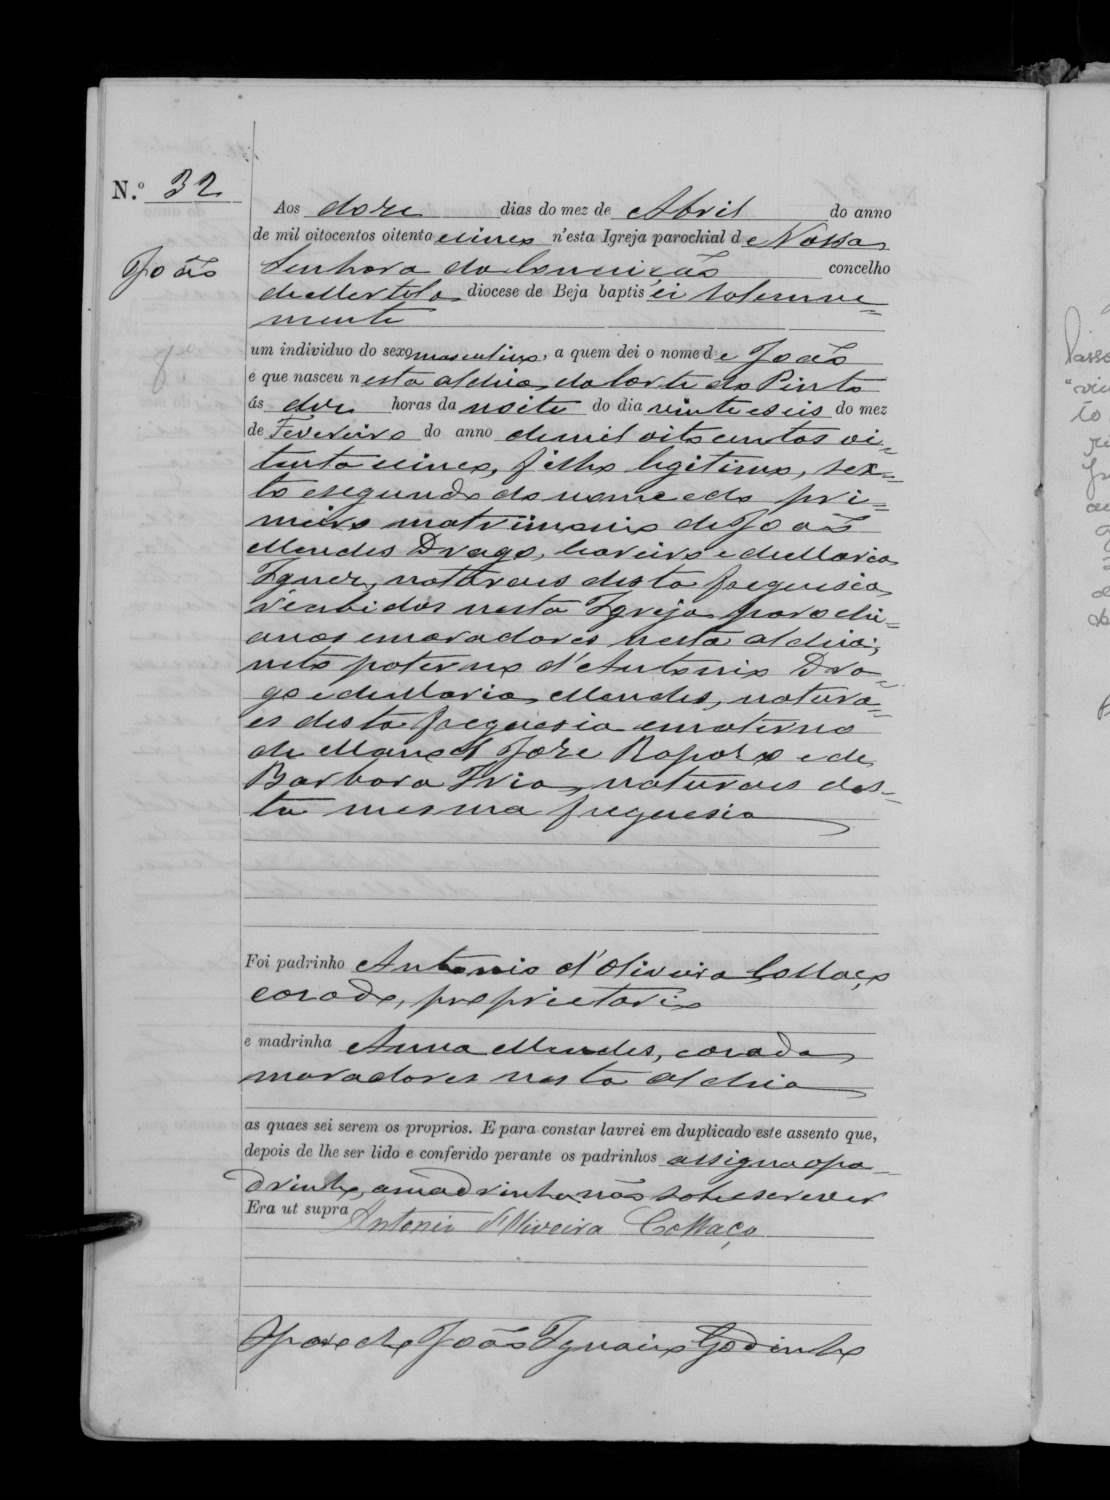 N.º 32
João
Aos doze dias do mez de Abril do anno
de mil oitocentos oitenta e cinco n'esta Igreja parochial de Nossa
Senhora da Conceição concelho
de Mertola diocese de Beja baptisei solemne=
mente
um individuo do sexo masculino, a quem dei o nome de João
e que nasceu nesta aldeia da Corte do Pinto
ás doze horas da noite do dia vinte e seis do mez
de Fevereiro do anno de mil oitocentos oi=
tenta e cinco, filho legitimo, sex=
to e segundo do nome e do pri=
meiro matrimonio de João
Mendes Drago, e de Maria
Ignez, naturaes desta freguesia
recebidos nesta Igreja parochi=
anos e moradores nesta aldeia;
neto paterno d'Antonio Dra=
go e de Maria Mendes, natura=
es desta freguesia e materno
de Manoel Joze Raposo e de
Barbara Iria, naturaes des=
ta mesma freguesia
Foi padrinho Antonio d'Oliveira Collaço
casado, proprietario
e madrinha Anna Mendes, casada
moradores nesta aldeia
as quaes sei serem os proprios. E para constar lavrei em duplicado este assento que,
depois de lhe ser lido e conferido perante os padrinhos assigna o pa=
drinho, a madrinha não sabe escrever
Era ut supra
Antonio d'Oliveira Collaço
O parocho João Ignacio Godinho